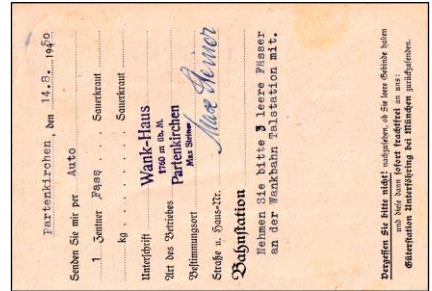 Partenkirchen, den 14.8. 1950
Senden Sie mir per Auto
1 Zentner Fass Sauerkraut
kg . . . . . Sauerkraut
Unterschrift Wank-Haus
1760 m üb. M.
Art des Betriebes Partenkirchen
Max Steiner
Bestimmungsort
Straße u. Haus-Nr. Max Steiner
Bahnstation
Nehmen Sie bitte 3 leere Fässer
an der Wankbahn Talstation mit.
Vergessen Sie bitte nicht! nachzusehen, ob Sie leere Gebinde haben
und diese dann sofort frachtfrei an uns:
Güterstation Unterföhring bei München zurückzusenden.